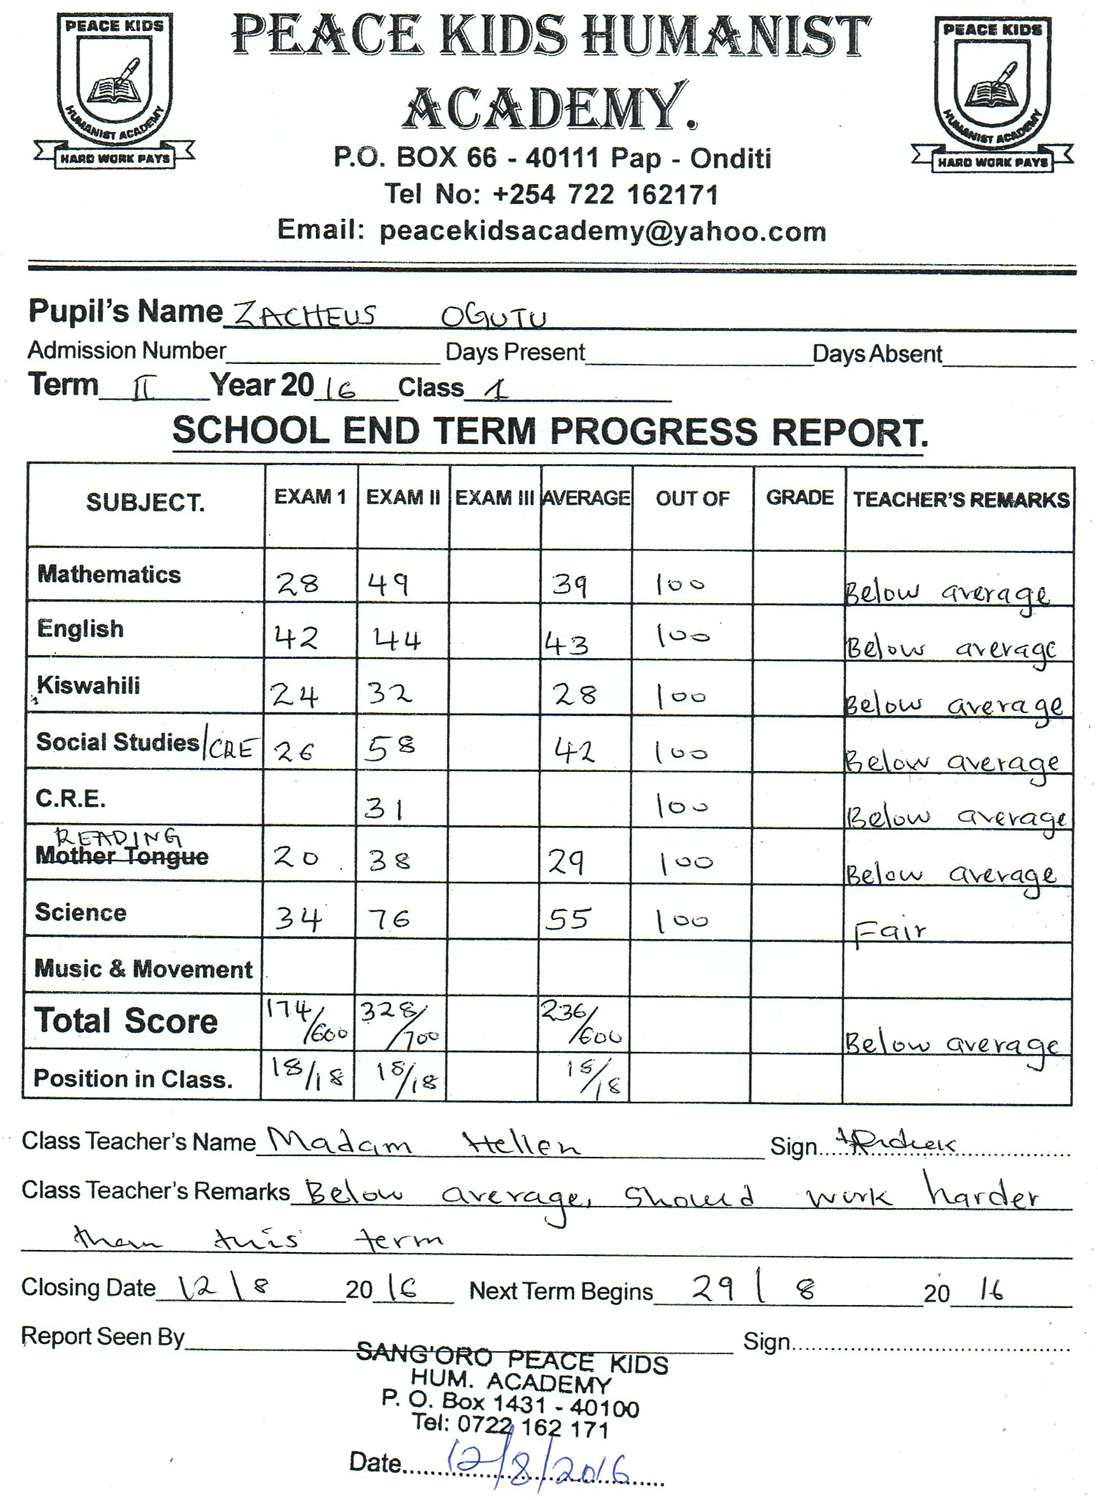 PEACE KIDS
HUMANIST ACADEMY
HARD WORK PAYS
PEACE KIDS HUMANIST
ACADEMY.
PEACE KIDS
HUMANIST ACADEMY
HARD WORK PAYS
P.O. BOX 66 - 40111 Pap - Onditi
Tel No: +254 722 162171
Email: peacekidsacademy@yahoo.com
Pupil's Name ZACHEUS OGUTU
Admission Number Days Present Days Absent
Term II Year 20 16 Class 1
SCHOOL END TERM PROGRESS REPORT.
SUBJECT. EXAM 1 EXAM II EXAM III AVERAGE OUT OF GRADE TEACHER'S REMARKS
Mathematics 28 49 39 100 Below average
English 42 44 43 100 Below average
Kiswahili 24 32 28 100 Below average
Social Studies/CRE 26 58 42 100 Below average
C.R.E. 31 100 Below average
READING
Mother Tongue 20 38 29 100 Below average
Science 34 76 55 100 Fair
Music & Movement
Total Score 174/600 328/700 236/600 Below average
Position in Class. 18/18 18/18 18/18
Class Teacher's Name Madam Hellen Sign
Class Teacher's Remarks Below average, should work harder
them this term
Closing Date 12/8 20 16 Next Term Begins 29/8 20 16
Report Seen By Sign
SANG'ORO PEACE KIDS
HUM. ACADEMY
P. O. Box 1431 - 40100
Tel: 0722 162 171
Date 12/8/2016